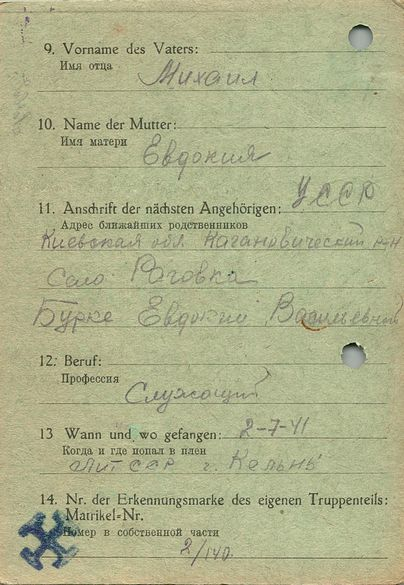 9. Vorname des Vaters:
Имя отца
Михаил
10. Name der Mutter:
Имя матери
Евдокия
11. Anschrift der nächsten Angehörigen: УССР
Адрес ближайших родственников
Киевская обл Кагановический р-н
Село Роговка
Бурке Евдокии Васильевной
12. Beruf:
Профессия
Служащий
13 Wann und wo gefangen: 2-7-41
Когда и где попал в плен
Лит ССР г.
14. Nr. der Erkennungsmarke des eigenen Truppenteils:
Matrikel-Nr.
Номер в собственной части
2/140